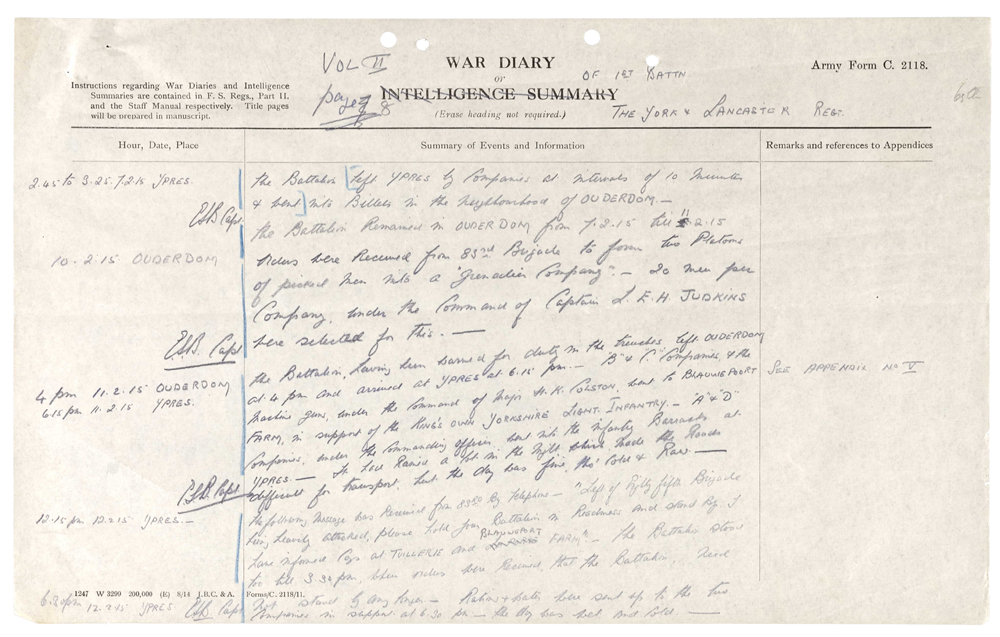 VOL II
WAR DIARY
or
OF 1ST BATTN
Army Form C. 2118.
Instructions regarding War Diaries and Intelligence
Summaries are contained in F. S. Regs., Part II.
and the Staff Manual respectively. Title pages
will be prepared in manuscript.
page 8
INTELLIGENCE SUMMARY
(Erase heading not required.)
THE YORK & LANCASTER REGT.
Hour, Date, Place
Summary of Events and Information
Remarks and references to Appendices
2.45 to 3.25. 7.2.15 YPRES.
The Battalion left YPRES by Companies at intervals of 10 Minutes
& went into Billets in the neighbourhood of OUDERDOM. —
ESB Capt
The Battalion Remained in OUDERDOM from 7.2.15 till 11.2.15
10.2.15 OUDERDOM
orders were Received from 83rd Brigade to form two Platoons
of picked men into a "Grenadier Company". — 20 men per
Company, under the Command of Captain L. E. H. JUDKINS
were selected for this. —
ESB. Capt
4 pm 11.2.15 OUDERDOM
The Battalion, having been warned for duty in the trenches left OUDERDOM
6.15 pm 11.2.15 YPRES.
at 4 pm and arrived at YPRES at 6.15 pm. — "B" & "C" Companies, & the
Machine guns, under the Command of Major H. K. COLSTON, went to BLAUWEPOORT
See APPENDIX No V
FARM, in support of the KING'S OWN YORKSHIRE LIGHT INFANTRY. — "A" & "D"
Companies, under the Commanding officer, went into the Infantry Barracks at
YPRES. — It had Rained a lot in the night, which made the Roads
difficult for transport, but the day was fine, tho' Cold & Raw. —
ESB Capt
12.15 pm 12.2.15 YPRES. —
The following Message was Received from 83rd By Telephone — "Left of Eighty fifth Brigade
being heavily attacked, please hold your Battalion in Readiness and stand by. I
have informed Coys at TUILLERIE and BLAUWEPOORT FARM". — The Battalion stood
to till 3.30 pm, when orders were Received, that the Battalion, need
not stand by any longer. — Rations & water were sent up to the two
6.30 pm 12.2.15 YPRES ESB Capt
Companies in support at 6.30 pm. — the day was wet and cold. —
1247 W 3299 200,000 (E) 8/14 J.B.C. & A. Forms/C. 2118/11.